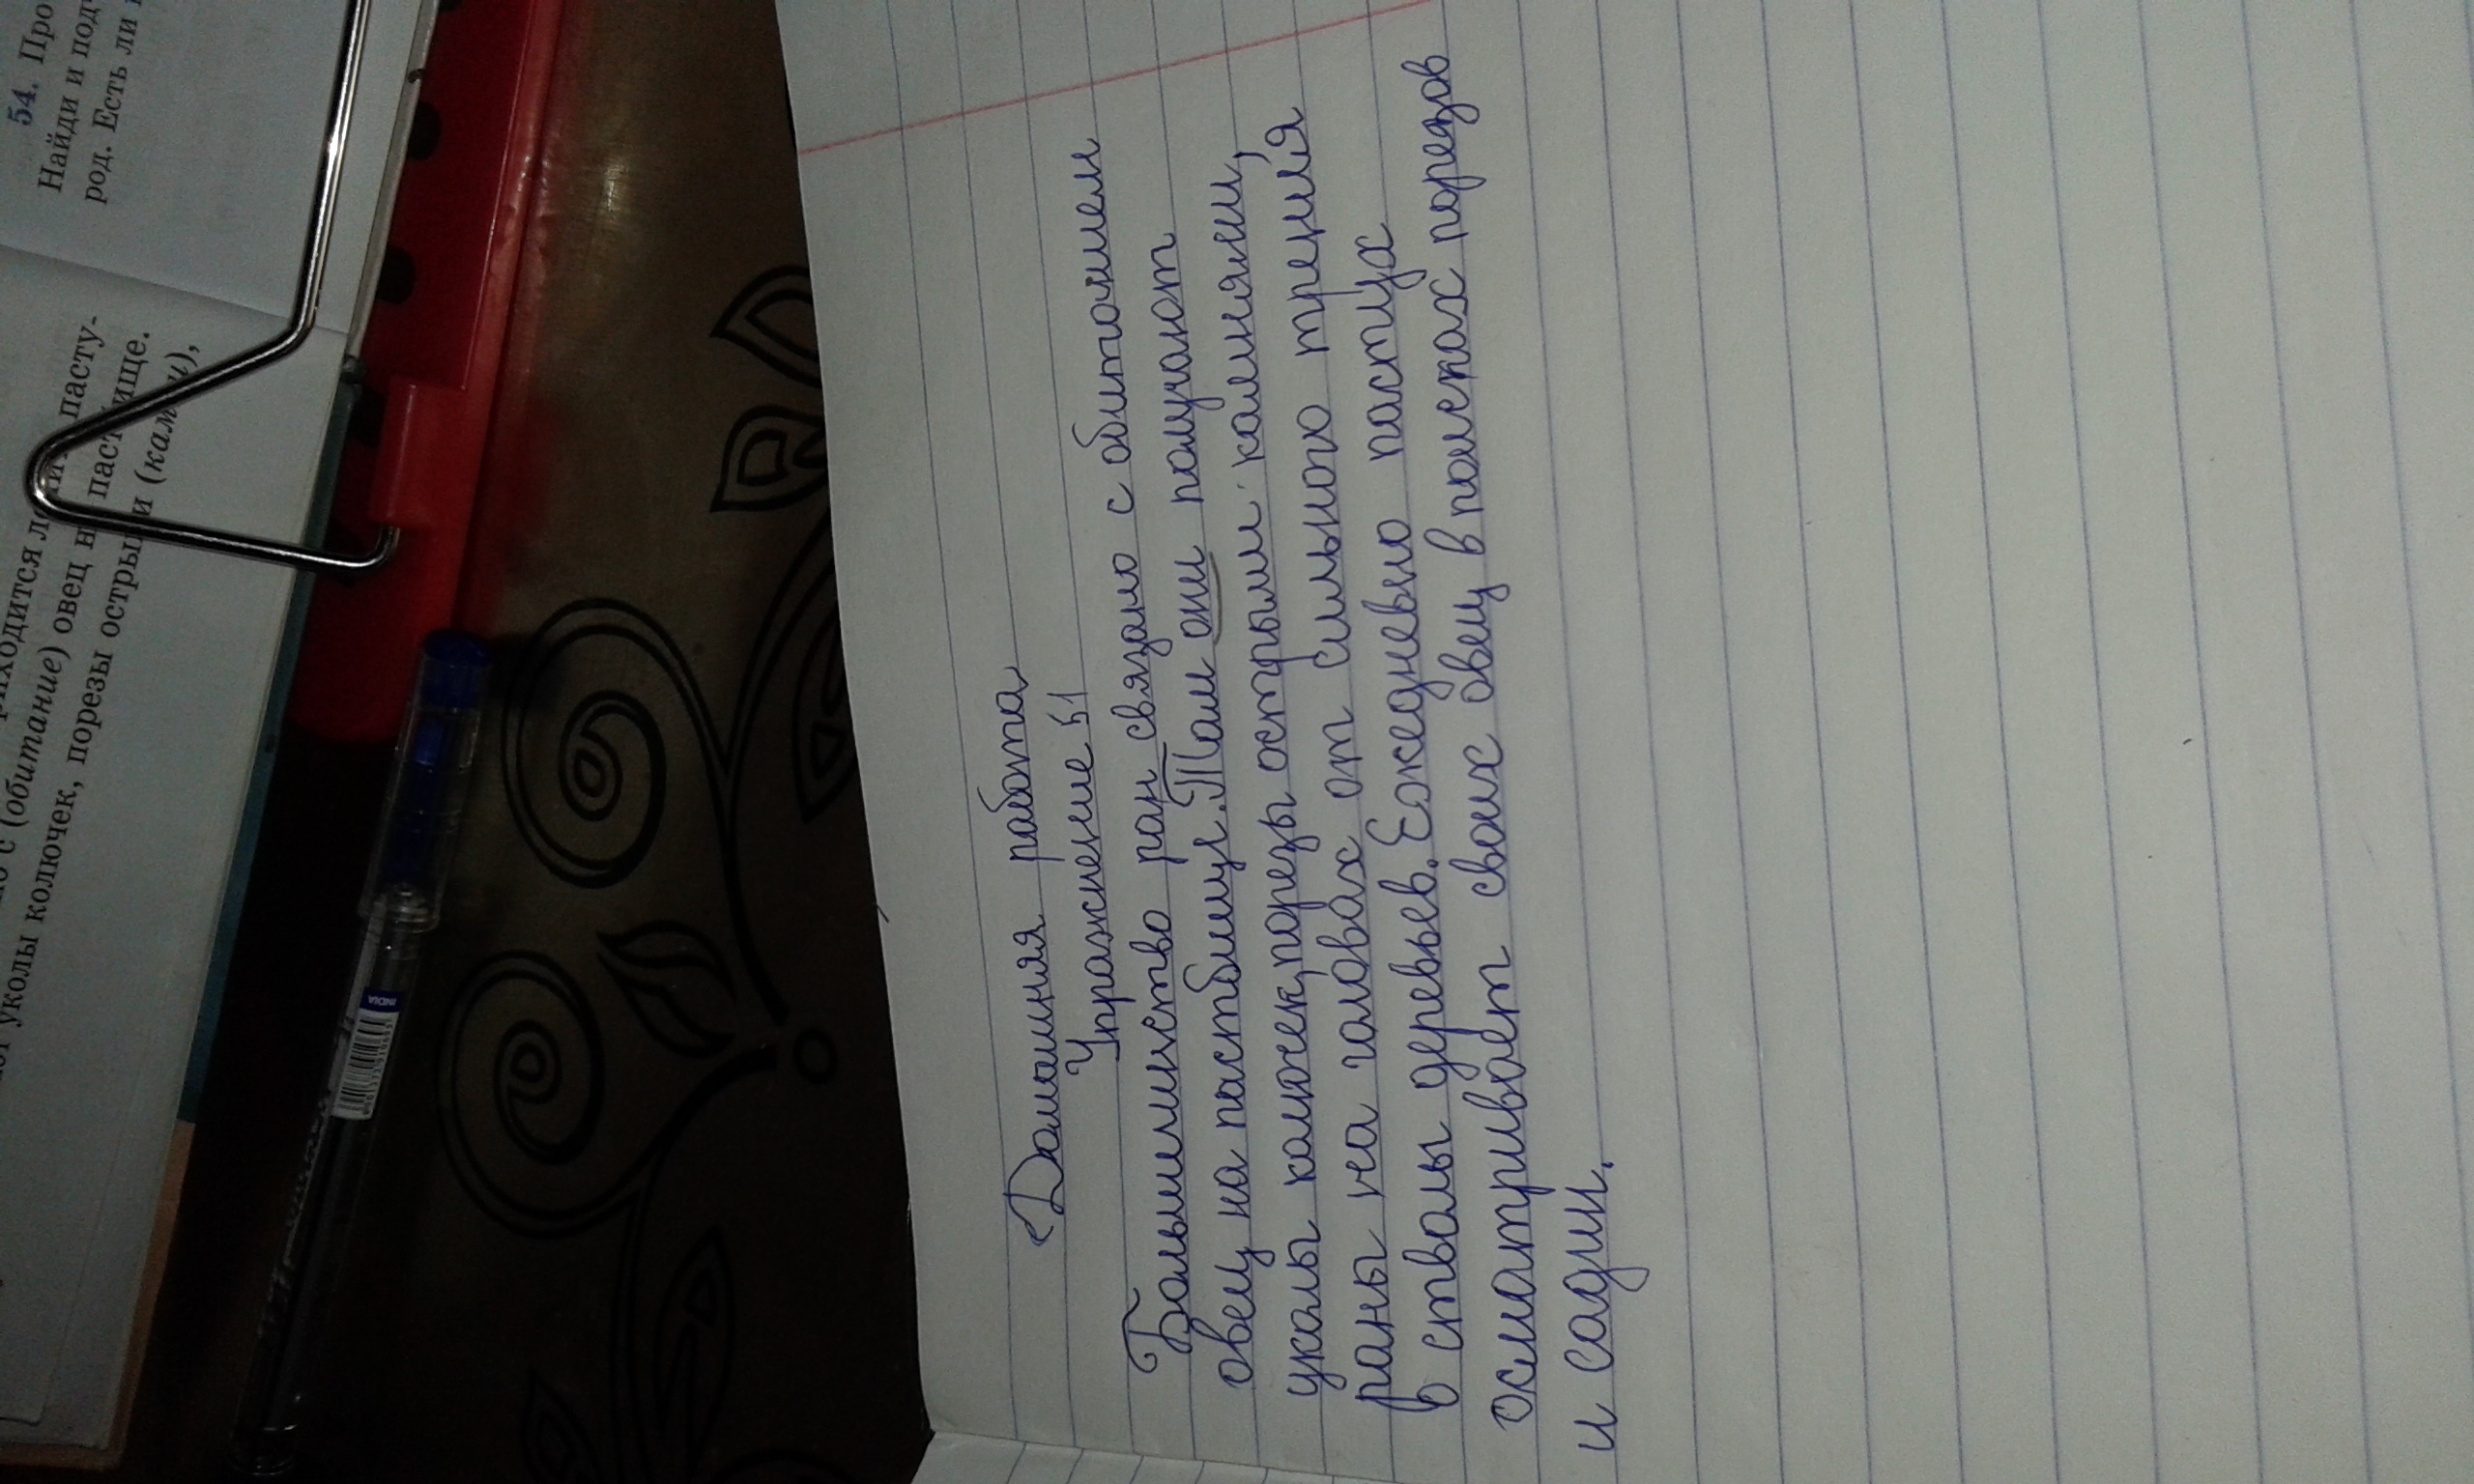 54. Про
Найди и под
род. Есть ли
ходится
пасту-
с (обитание) овец
паст ище.
уколы колючек, порезы остры и (кам и),
INDIA
Домашняя работа
Упражнение 51
Большинство ран связано с обитанием
овец на пастбищах. Там они получают
уколы колючек, порезы острыми камнями,
раны на головах от сильного трения
в стволы деревьев. Ежедневно пастух
осматривает своих овец в поисках порезов
и садин.